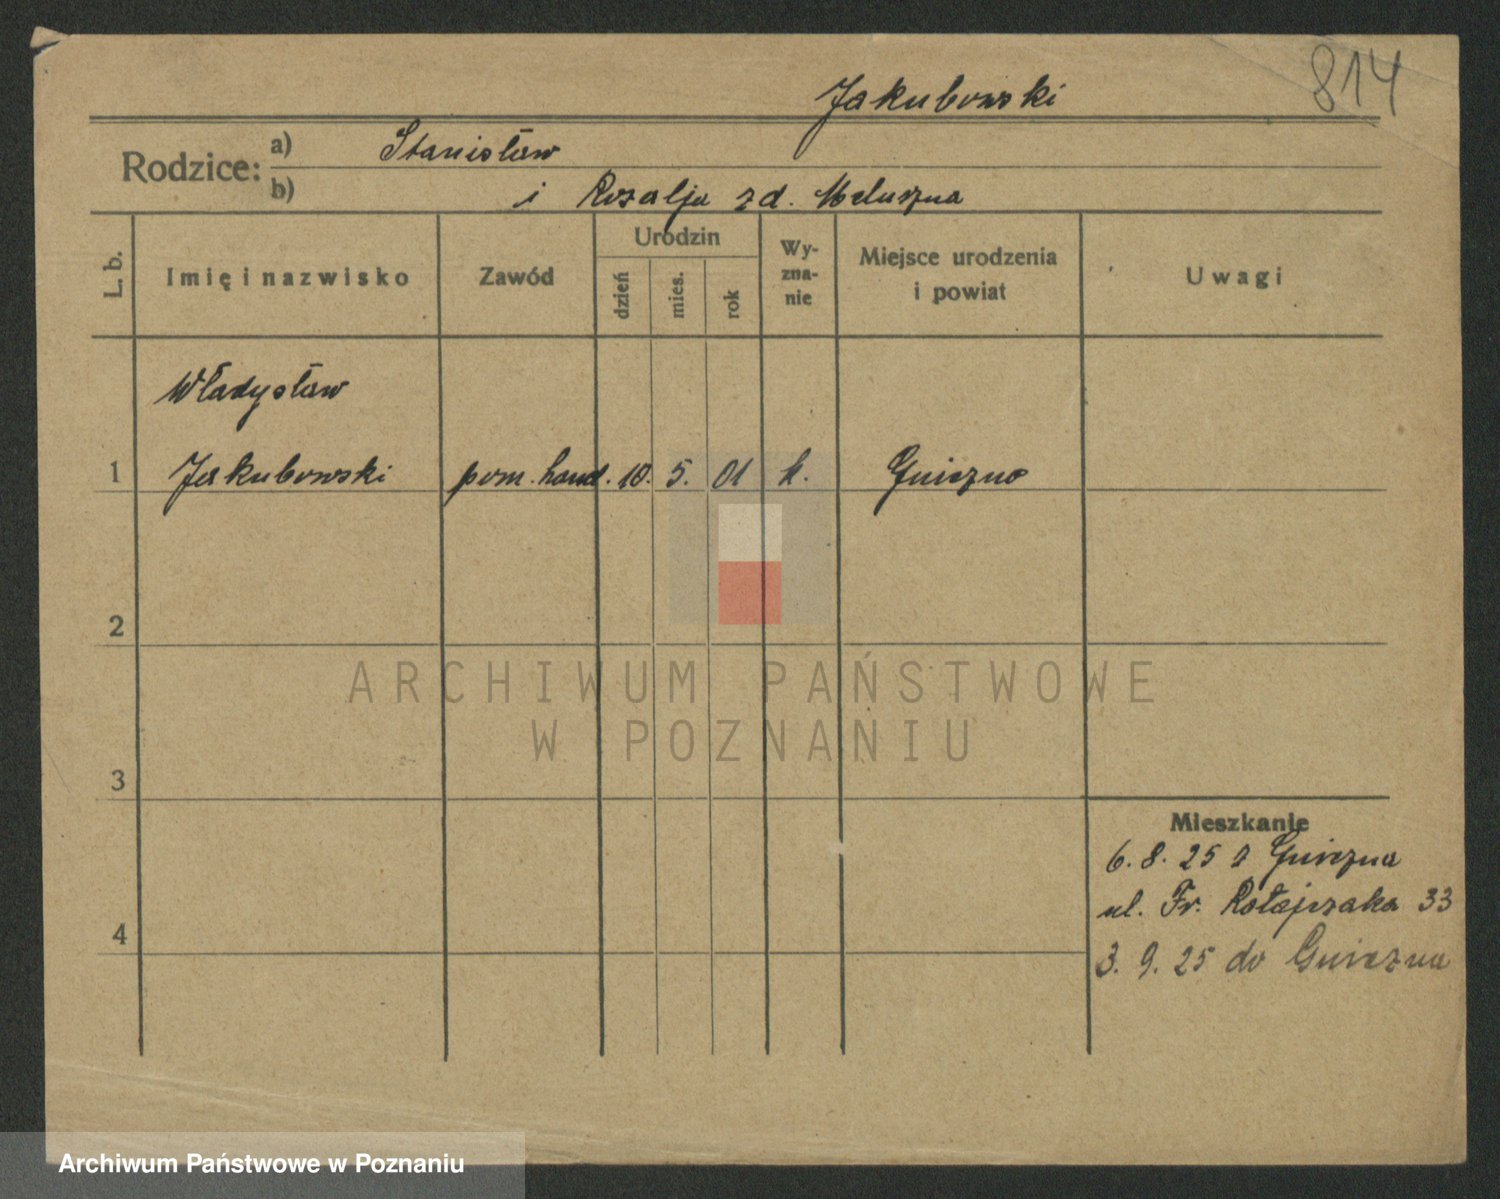 814
Jakubowski
Rodzice: a) Stanisław
b) i Rozalja zd. Meluszna
L. b.
Imię i nazwisko
Zawód
Urodzin
dzień
mies.
rok
Wy-
zna-
nie
Miejsce urodzenia
i powiat
Uwagi
Władysław
1 Jakubowski pom. hand. 10. 5. 01 k. Gniezno
2
ARCHIWUM PAŃSTWOWE
W POZNANIU
3
Mieszkanie
6. 8. 25 z Gniezna
ul. Fr. Ratajczaka 33
4
3. 9. 25 do Gniezna
Archiwum Państwowe w Poznaniu